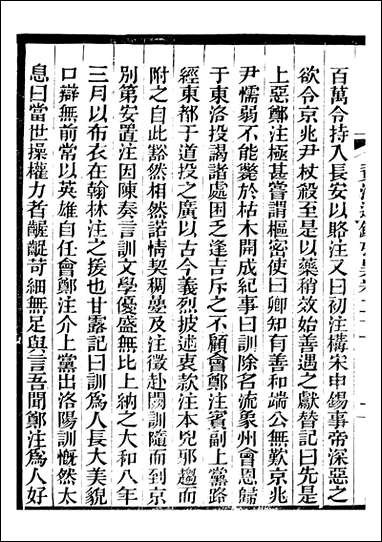 百萬令持入長安以賂注又曰初注構宋申錫事帝深惡之
欲令京兆尹杖殺至是以藥稍效始善遇之獻替記曰先是
上惡鄭注極甚嘗謂樞密使曰卿知有善和端公無歎京兆
尹懦弱不能斃於枯木開成紀事曰訓除名流象州會恩歸
于東洛投謁諸處困乏逢吉斥之不顧會鄭注賓副上黨路
經東都于道投之廣以古今義烈披述衷款注本兇邪趨而
附之自此豁然相然諾情契稠疊及注徵赴闕訓隨而到京
別第安置注因陳奏言訓文學優盛無比上納之大和八年
三月以布衣在翰林注之援也甘露記曰訓爲人長大美貌
口辯無前常以英雄自任會鄭注介上黨出洛陽訓慨然太
息曰當世操權力者齷齪苛細無足與言吾聞鄭注爲人好